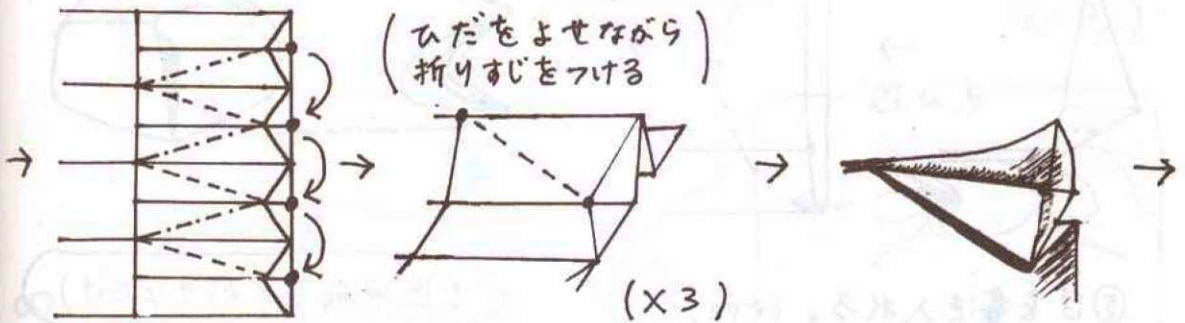 (ひだをよせながら
折りすじをつける)
(×3)